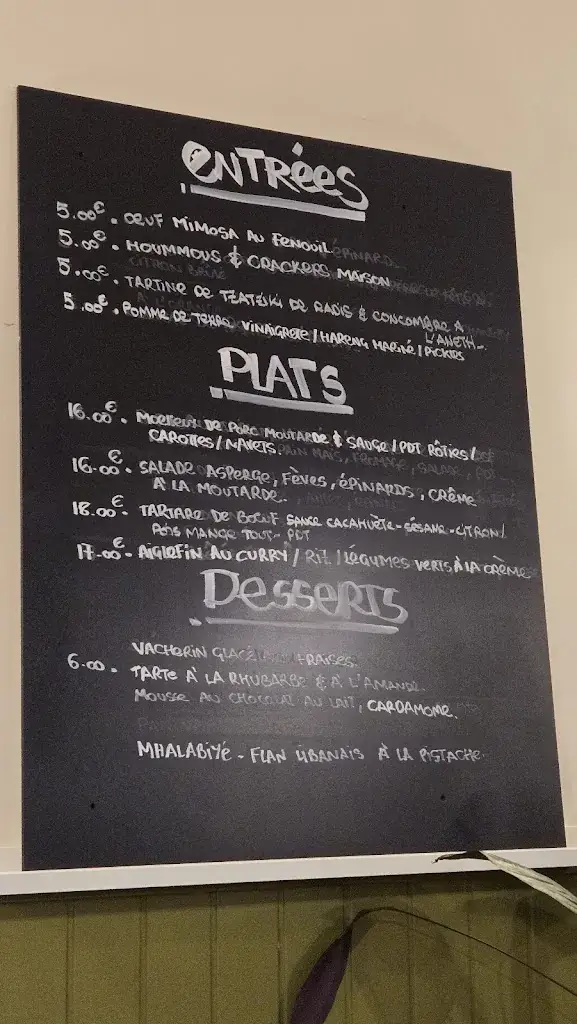 ENTRÉES
5.00€. OEUF MIMOSA AU FENOUIL
5.00€. HOUMMOUS & CRACKERS MAISON
5.00€. TARTINE DE TZATZIKI DE RADIS & CONCOMBRE A
L'ANETH
5.00€. POMME DE TERRE VINAIGRETE / HARENG MARINÉ / PICKLES
PLATS
16.00€. DE PORC MOUTARDE & SAUGE / PDT RÔTIES /
CAROTTES / NAVETS.
16.00€. SALADE ASPERGE, FÈVES, ÉPINARDS, CRÊME
À LA MOUTARDE.
18.00€. TARTARE DE BOEUF SAUCE CACAHUÈTE-SÉSAME-CITRON /
POIS MANGE TOUT - PDT
17.00€. AIGLEFIN AU CURRY / RIZ / LÉGUMES VERTS À LA CRÈME
DESSERTS
VACHERIN GLACÉ FRAISES
6.00. TARTE À LA RHUBARBE & À L'AMANDE.
MOUSSE AU CHOCOLAT AU LAIT, CARDAMOME.
MHALABIYÉ - FLAN LIBANAIS À LA PISTACHE.